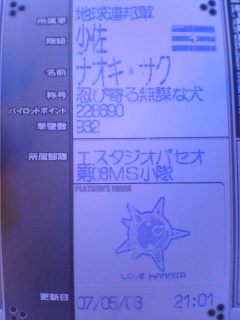 所属軍 地球連邦軍
階級 少佐
名前 ナオキ・サク
称号 忍び寄る無謀な犬
パイロットポイント 228690
撃墜数 932
所属部隊 エスタジオパセオ
第08MS小隊
PLATOON'S MARK
LOVE HAMMER
更新日 07/05/03 21:01